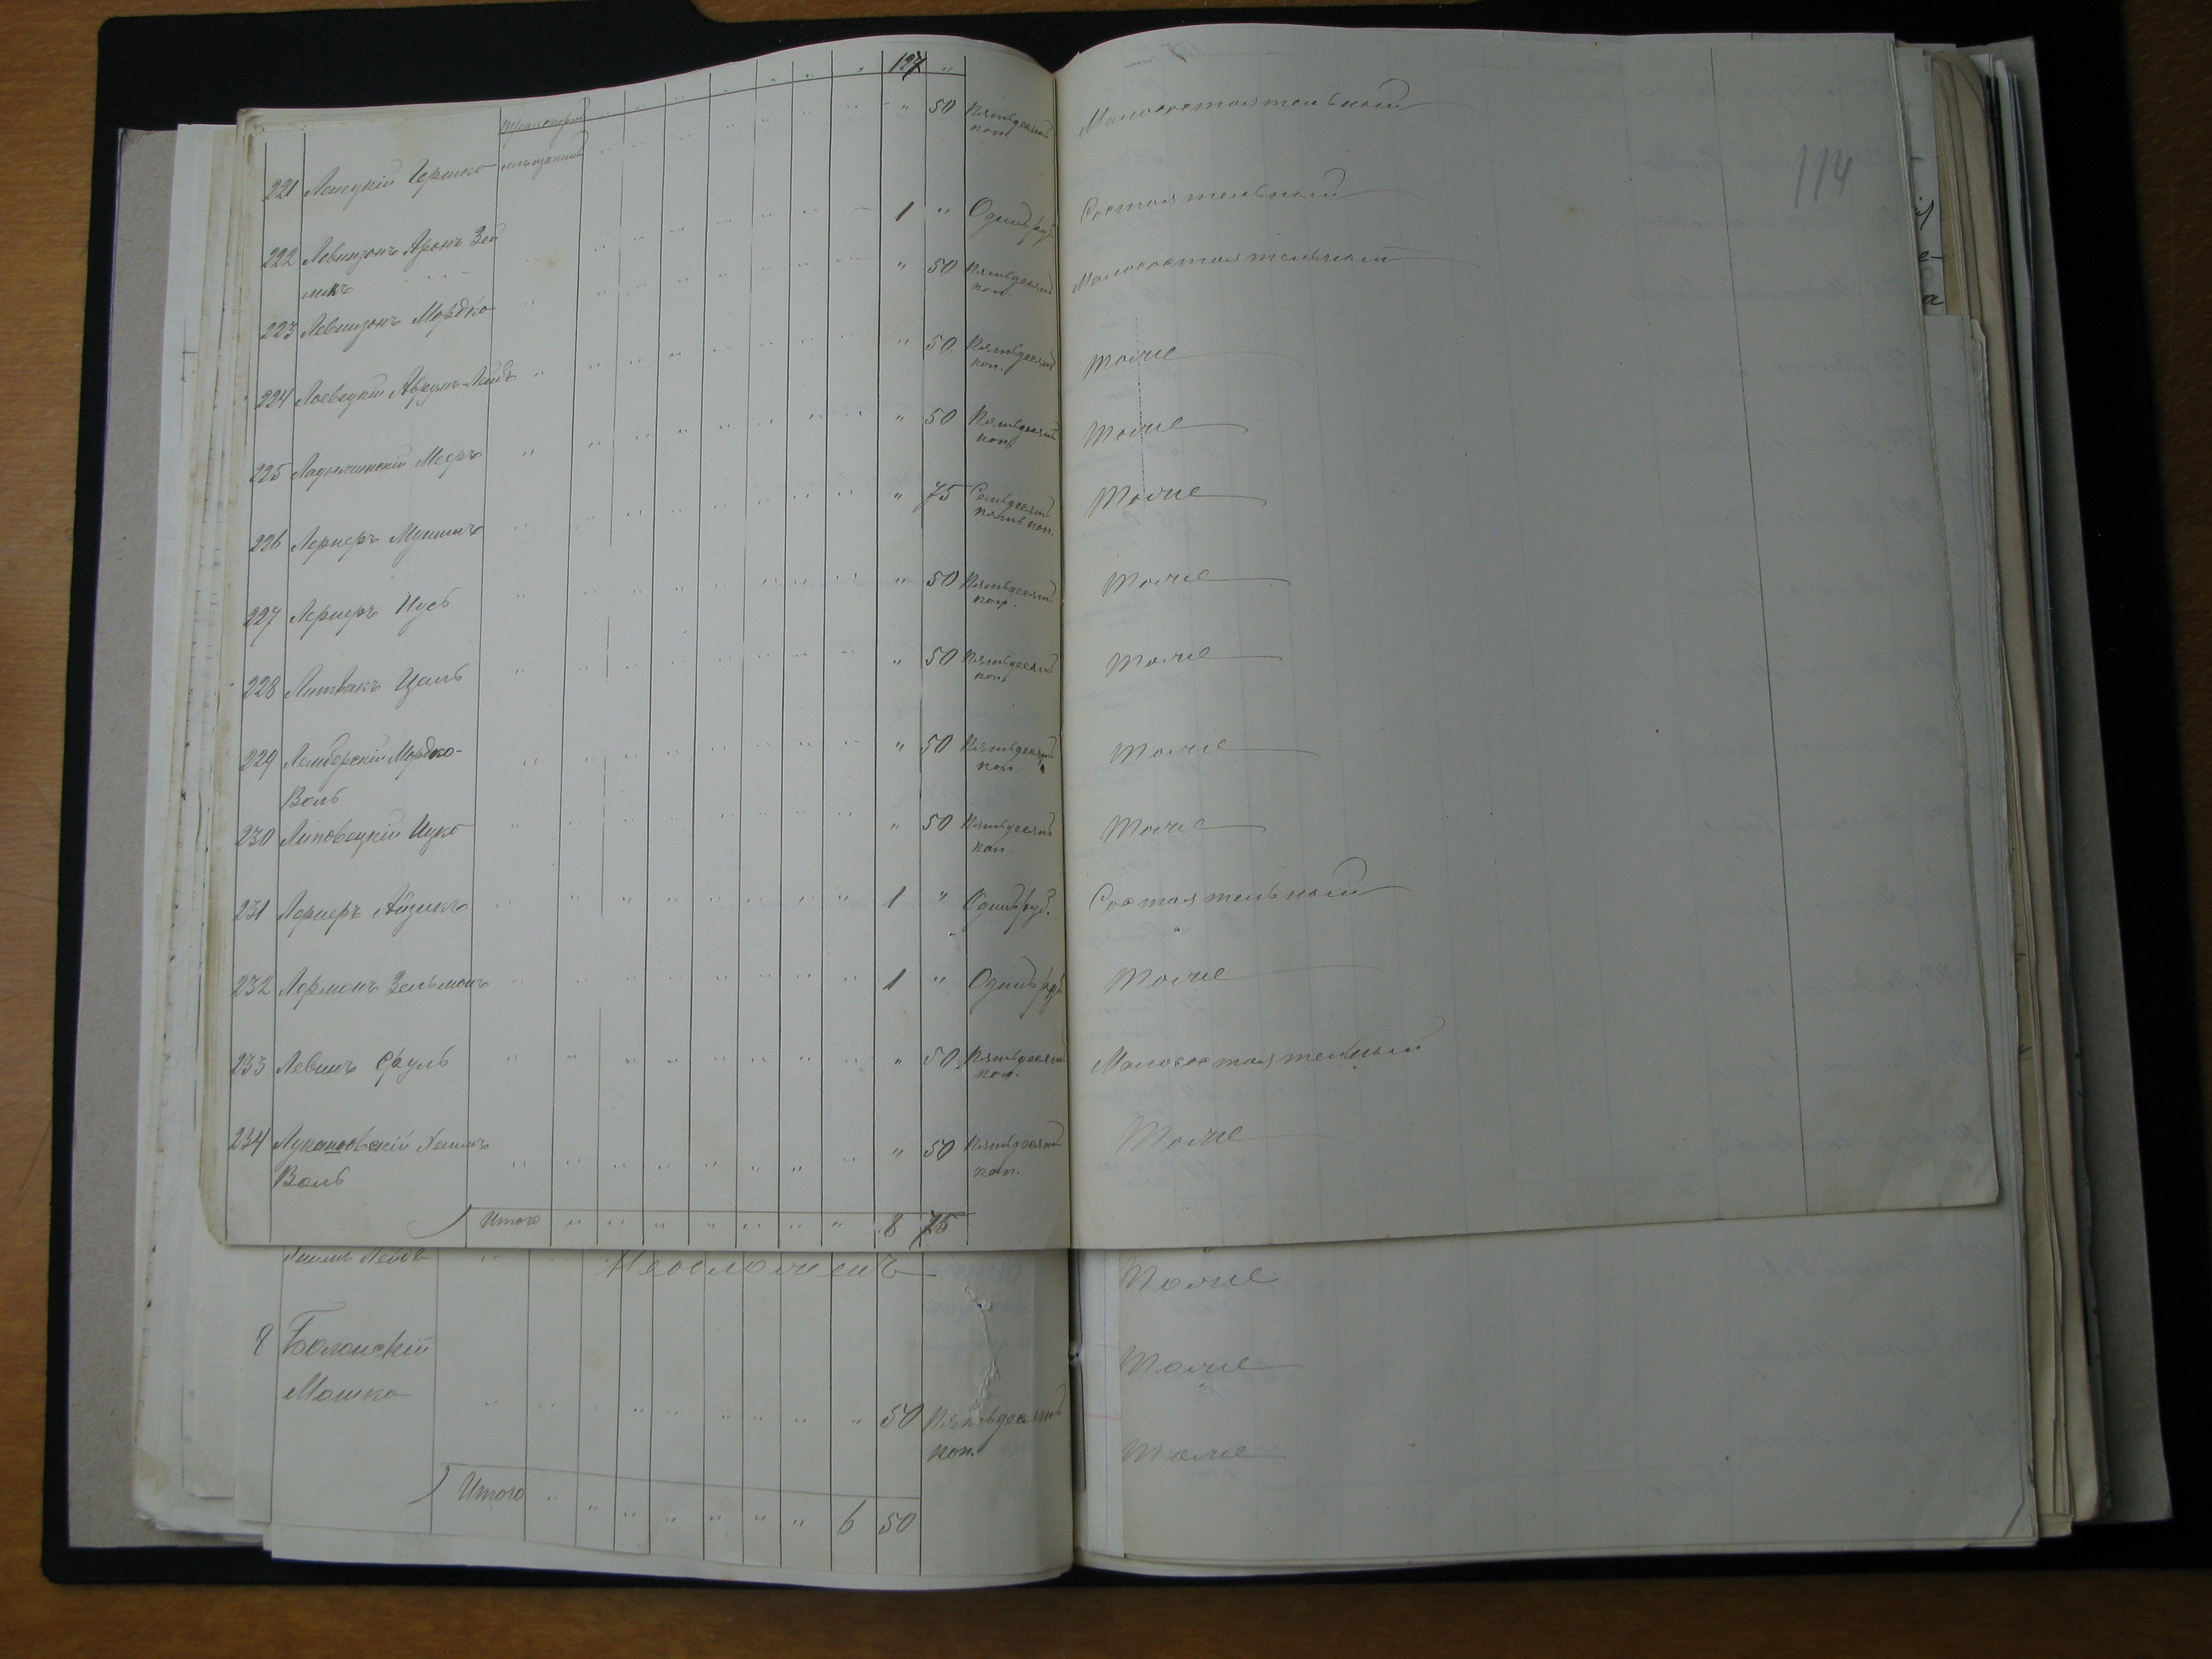 Транспортъ " " " " " " " 127 "
221 Липецкій Гершко мѣщанинъ " 50 Пятьдесятъ коп. Малосостоятельный
114
222 Левинзонъ Аронъ Зей 1 " Одинъ руб. Состоятельный
ликъ
223 Левинзонъ Мордко " 50 Пятьдесятъ коп. Малосостоятельный
224 Лоевецкій Аврумъ-Лейбъ " 50 Пятьдесятъ коп. Тоже
225 Ладыжинскій Мееръ " 50 Пятьдесятъ коп. Тоже
226 Лернеръ " 75 Семьдесятъ пять коп. Тоже
227 Лернеръ Нусь " 50 Пятьдесятъ коп. Тоже
228 Литвакъ Цаль " 50 Пятьдесятъ коп. Тоже
229 Лемберскій Мордко- " 50 Пятьдесятъ коп. Тоже
Воль
230 Липовецкій Ицко " 50 Пятьдесятъ коп. Тоже
231 Лернеръ Айзикъ 1 " Одинъ руб. Состоятельный
232 Лерманъ Зельманъ 1 " Одинъ руб. Тоже
233 Левинъ Сруль " 50 Пятьдесятъ коп. Малосостоятельный
234 Лукашовскій Хаимъ " 50 Пятьдесятъ коп. Тоже
Воль
Итого " " " " " " " 8 75
Хаимъ Лейбъ Необложенъ Тоже
8 Балонскій Тоже
Мошко " 50 Пятьдесятъ
коп. Тоже
Итого " " " " " " " 6 50